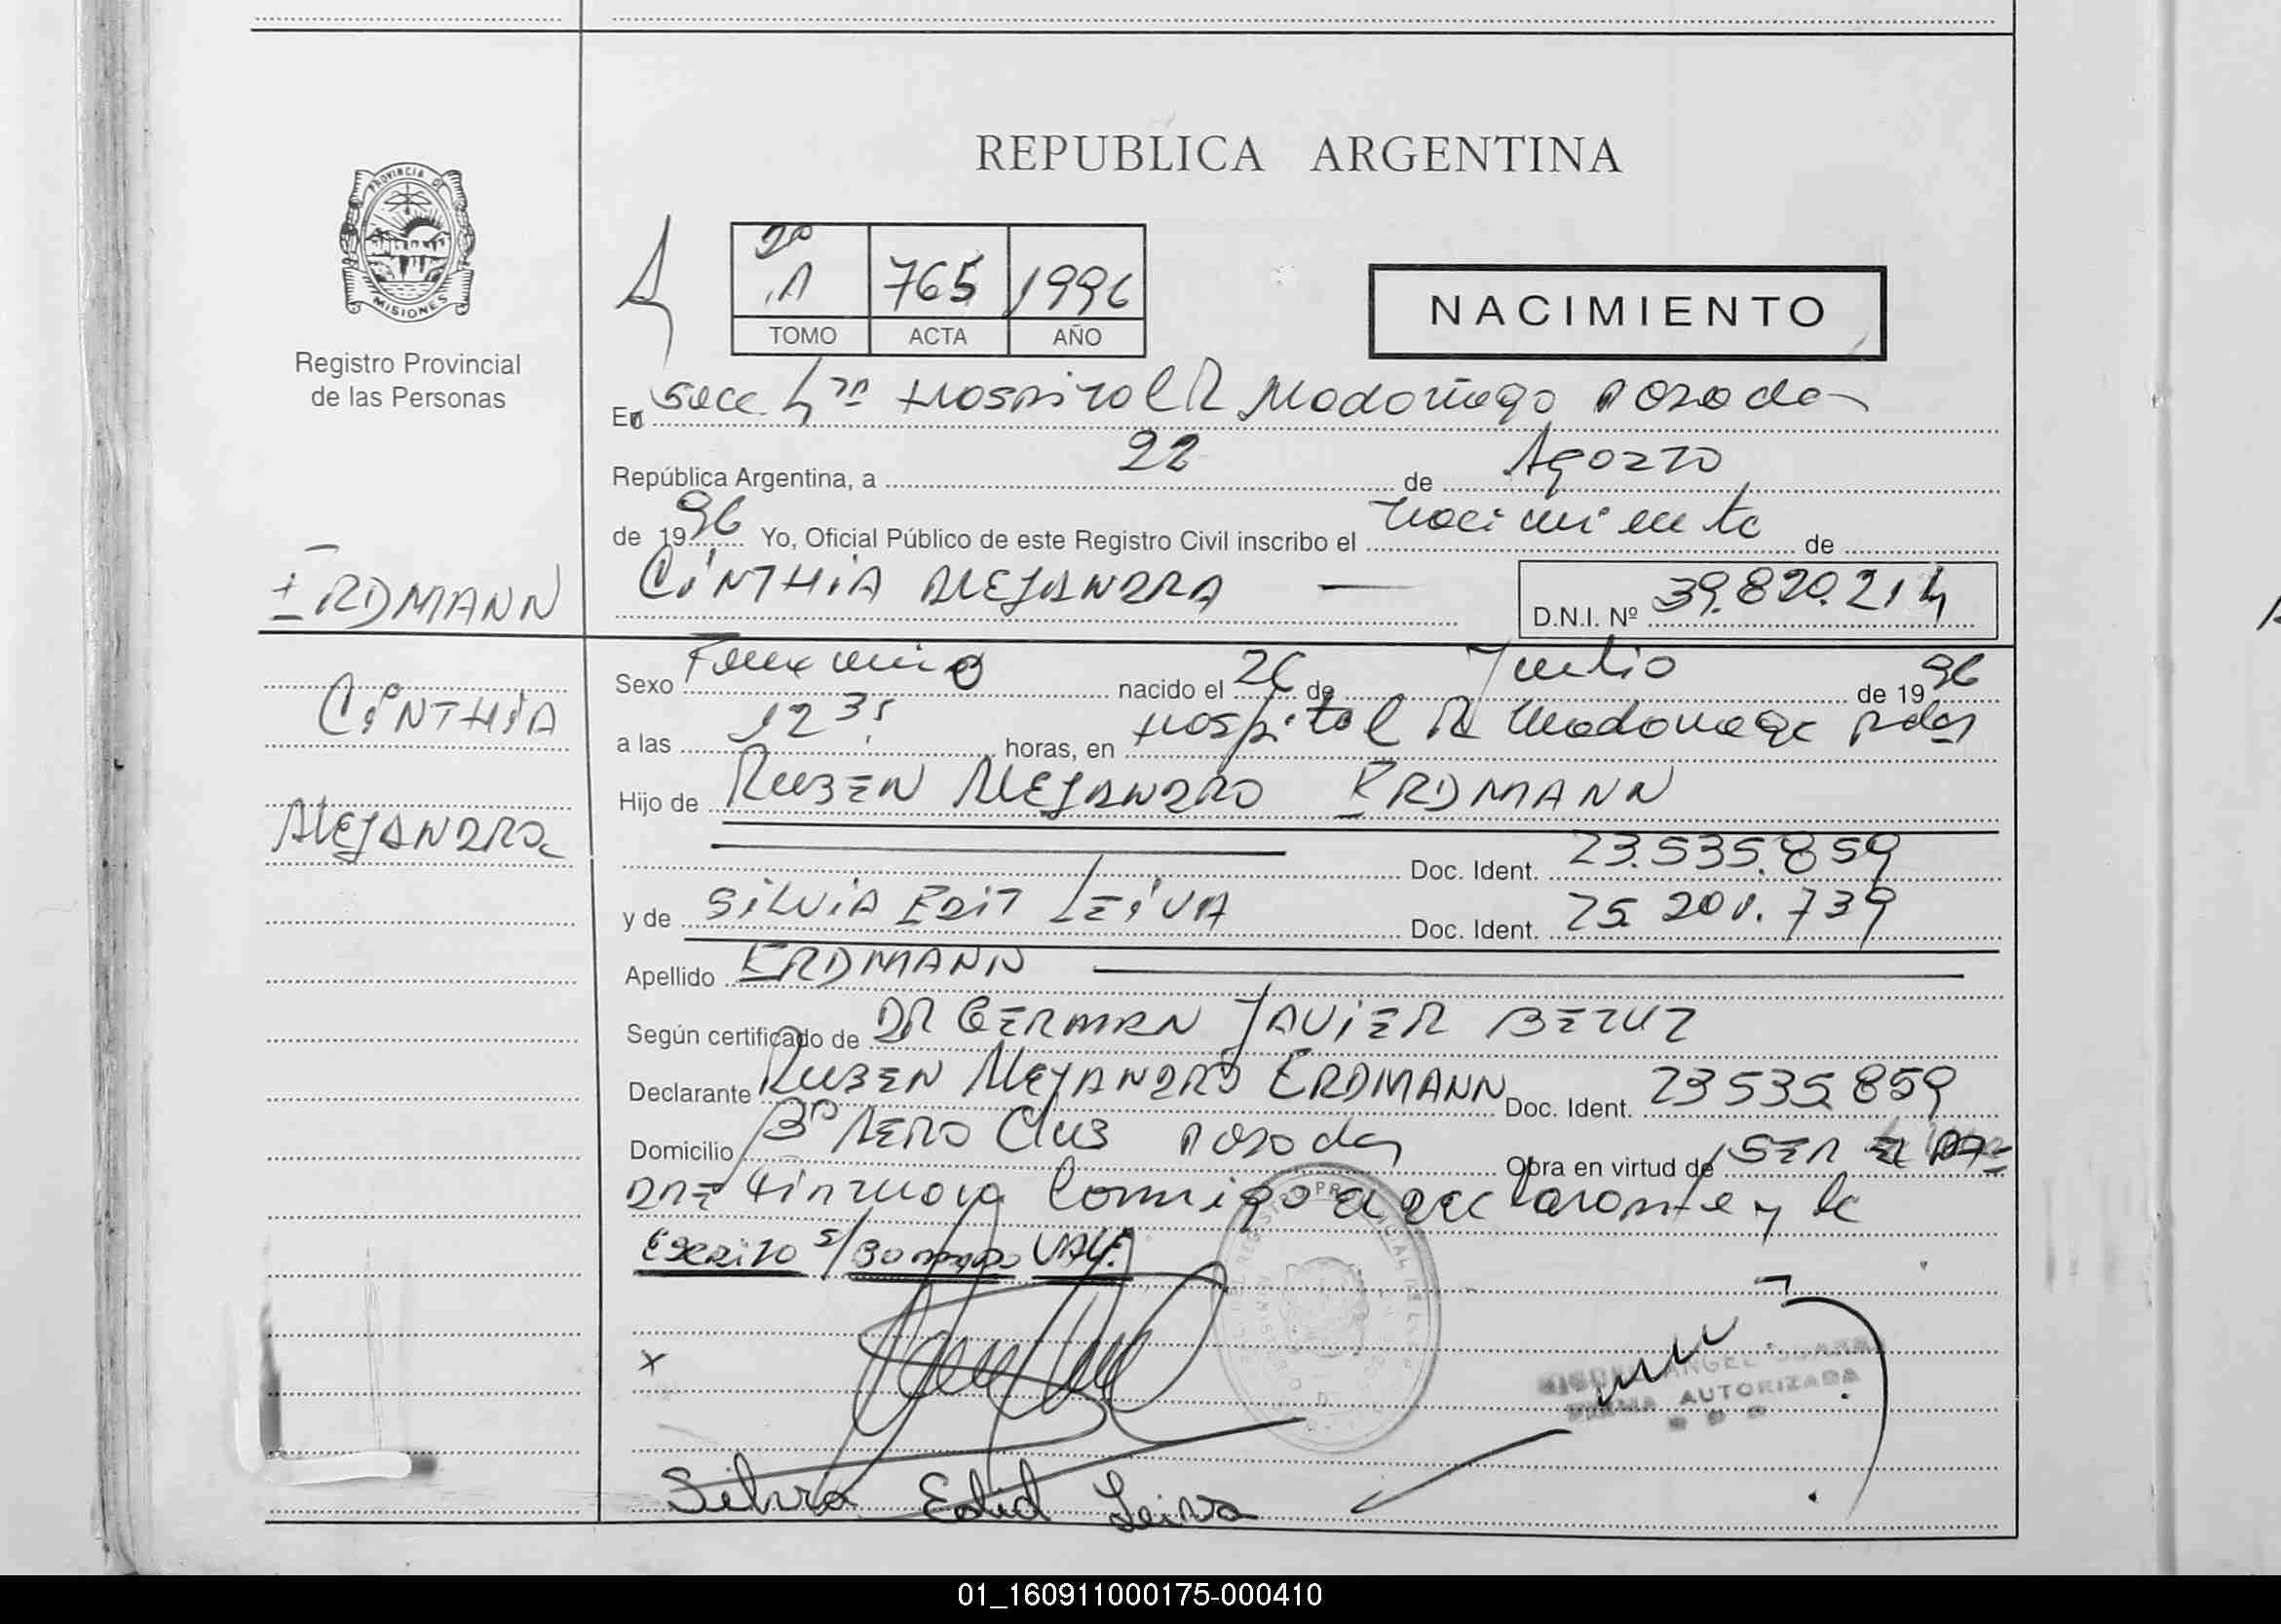 REPUBLICA ARGENTINA
PROVINCIA DE
MISIONES
Registro Provincial
de las Personas
2º
765 1996
TOMO ACTA AÑO
NACIMIENTO
En Secc 4ta Hospital R Madariaga Posadas
República Argentina, a 22 de Agosto
de 1996 Yo, Oficial Público de este Registro Civil inscribo el nacimiento de
ERDMANN
CINTHIA ALEJANDRA
D.N.I. Nº 39.820.214
Sexo Femenino nacido el 26 de Julio de 1996
CINTHIA
a las 12 35 horas, en Hospital R Madariaga Pdas
Hijo de RUBEN ALEJANDRO ERDMANN
ALEJANDRA
Doc. Ident. 23.535.859
y de SILVIA EDIT LEIVA Doc. Ident. 25.201.739
Apellido ERDMANN
Según certificado de DR GERMAN JAVIER
Declarante RUBEN ALEJANDRO ERDMANN Doc. Ident. 23535859
Domicilio Bº AERO CLUB Posadas Obra en virtud de SER EL PA=
DRE Firman conmigo el declarante y la
Escrito s/Borrado VALE.
X
ANGEL
FIRMA AUTORIZADA
Silvia Edid Leiva
01_160911000175-000410